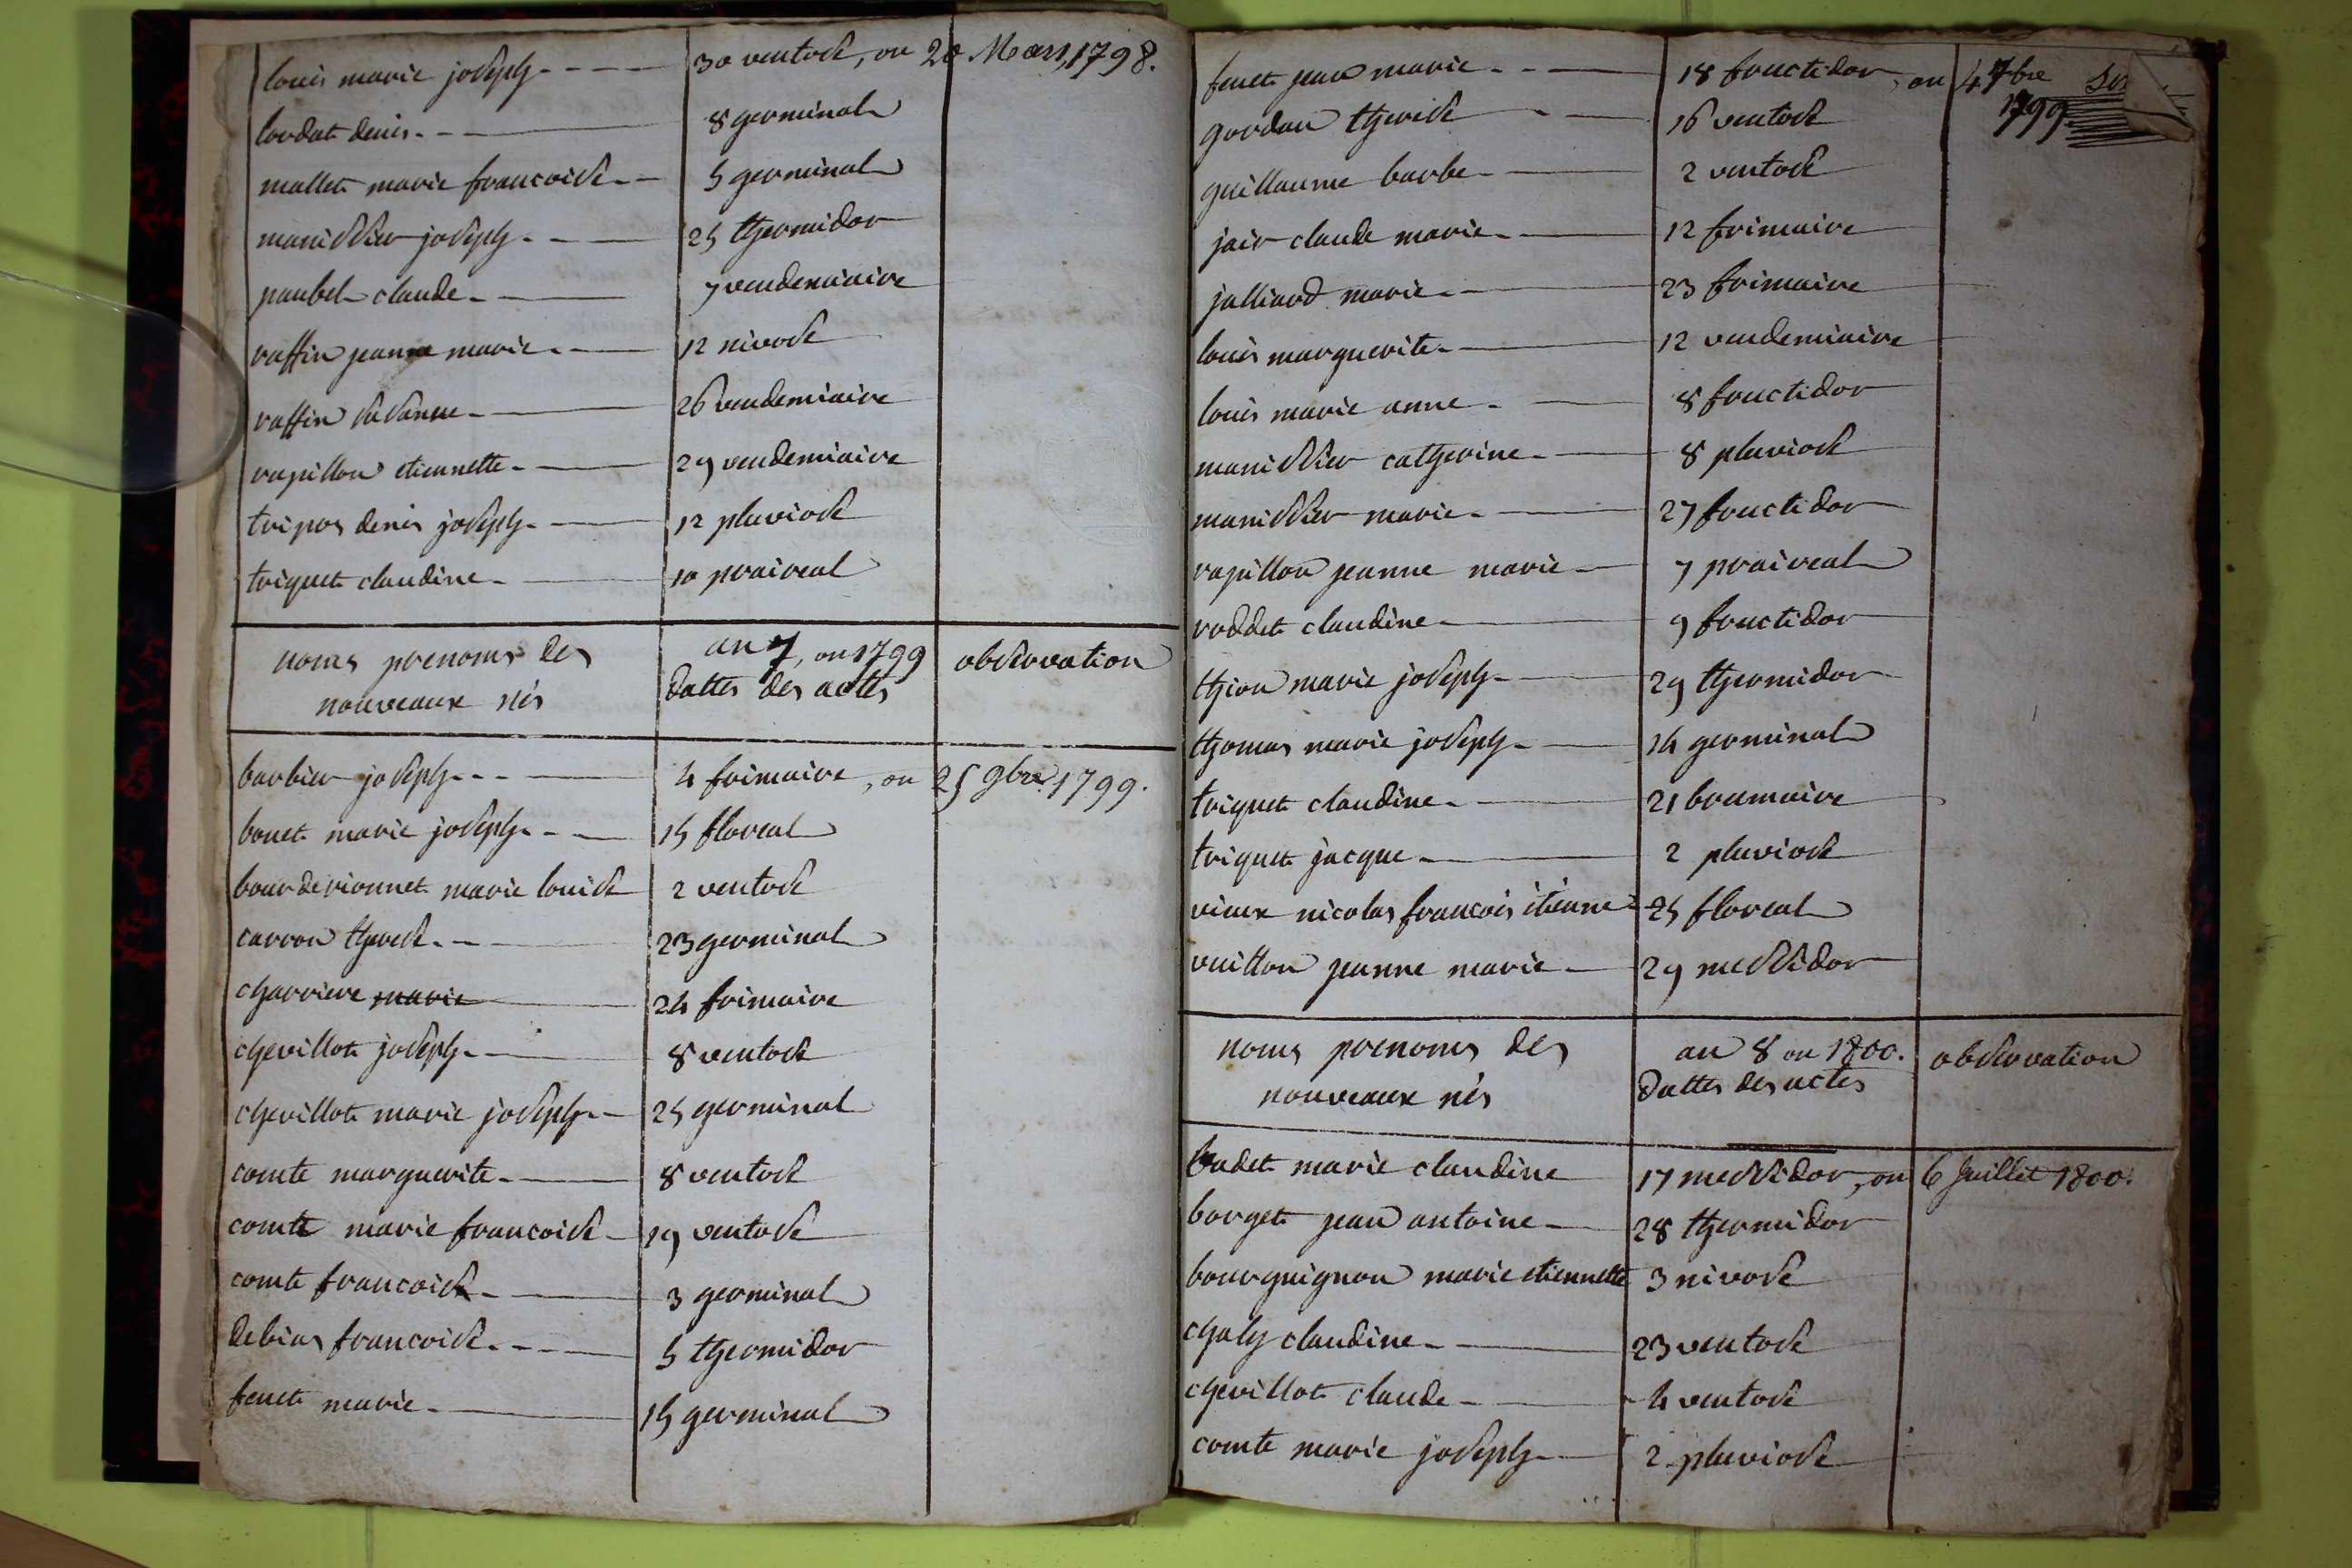 louis marie joseph - - - - 30 ventose, ou 20 Mars, 1798.
lordat denis - - 8 germinal
mallet marie francoise - - 5 germinal
manissier joseph - - 25 thermidor
paubel claude - 7 vendemiaire
raffin jeanne marie - - 12 nivose
raffin susanne - 26 vendemiaire
rapillon etiennette - 29 vendemiaire
tripos denis joseph - 12 pluviose
triquet claudine - 10 praireal
noms prenoms des an 7, ou 1799 observation
nouveaux nés dattes des actes
barbier joseph - - - 4 frimaire, ou 25 9bre 1799.
bouet marie joseph - - 15 floreal
bourderionnet marie louise 2 ventose
carron therese - - 23 germinal
charriere marie 24 frimaire
chevillot joseph - 8 ventose
chevillot marie joseph - 25 germinal
comte marguerite - 8 ventose
comte marie francoise - 19 ventose
comte francoise - 3 germinal
debias francoise - - - 5 thermidor
fenet marie - 15 germinal
fenet jean marie - - 18 fructidor, ou 4 7bre
1799
gordan therese - 16 ventose
guillaume barbe - 2 ventose
jair claude marie - 12 frimaire
jalliard marie - 23 frimaire
louis marguerite - 12 vendemiaire
louis marie anne - 8 fructidor
manissier catherine - 8 pluviose
manissier marie - 27 fructidor
rapillon jeanne marie - 7 praireal
roddet claudine - 9 fructidor
thion marie joseph - 29 thermidor
thomas marie joseph - 14 germinal
triquet claudine - 21 brumaire
triquet jacque - 2 pluviose
vieux nicolas francois étienne - 25 floreal
vuillon jeanne marie - 29 messidor
noms prenoms des an 8 ou 1800. observation
nouveaux nés dattes des actes
badet marie claudine 17 messidor, ou 6 Juillet 1800.
borget jean antoine - 28 thermidor
bourguignon marie etiennette 3 nivose
chaly claudine - 23 ventose
chevillot claude - 4 ventose
comte marie joseph - 2 pluviose